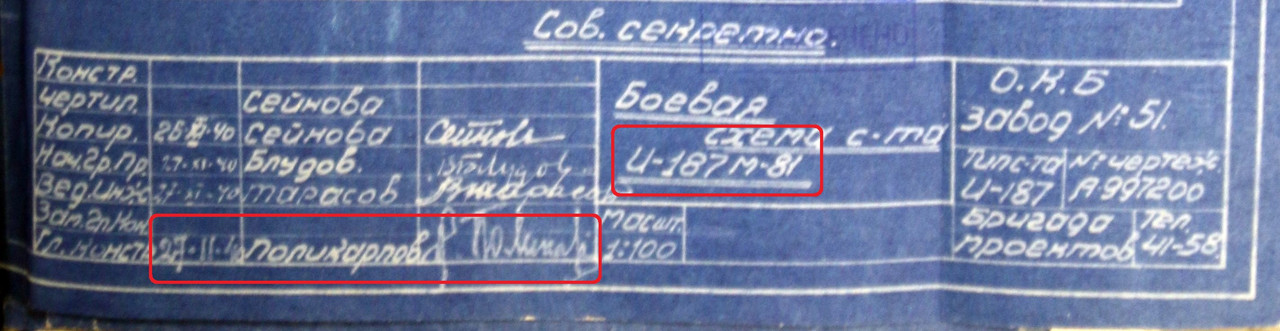 Сов. секретно.
Констр.
Чертил. Сейнова
Копир. 26 XI-40 Сейнова Сейнова
Нач.Гр.Пр. 27-XI-40 Блудов. Блудов
Вед.Инж. 27-XI-40 Тарасов
Зам.Гл.Кон.
Гл. Конст. Поликарпов
Боевая
схема с-та
И-187 М-81
Масшт.
1:100
О.К.Б
Завод №51.
Тип с-та
И-187
№ чертеж.
А-997200
Бригада
проектов
Тел.
41-58.